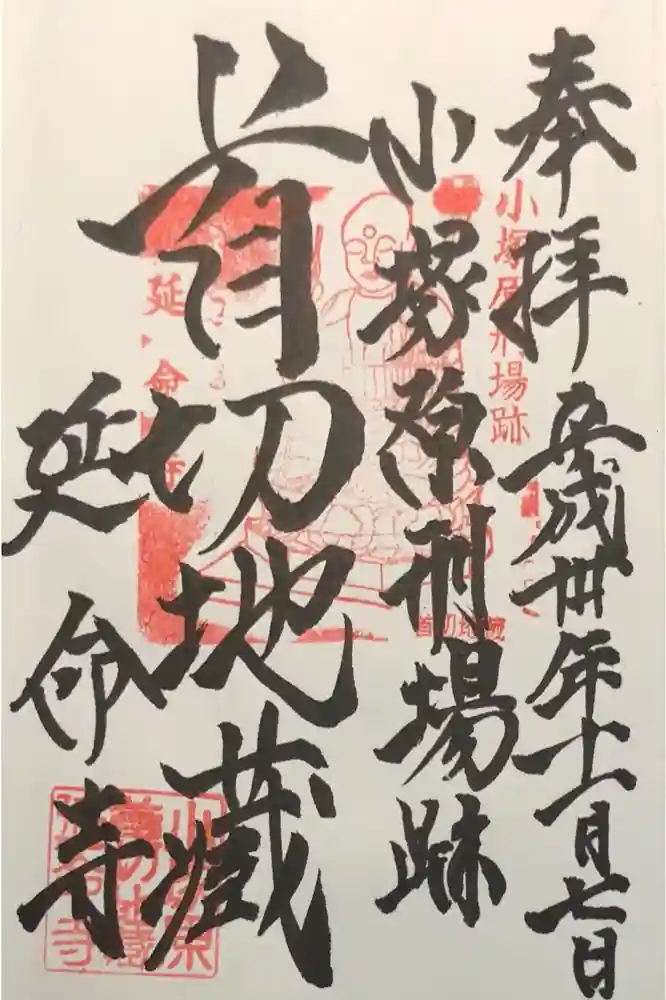 奉拝
平成卅年十一月七日
小塚原刑場跡
首切地蔵
延命寺
小塚原刑場跡
首切地蔵
延命寺